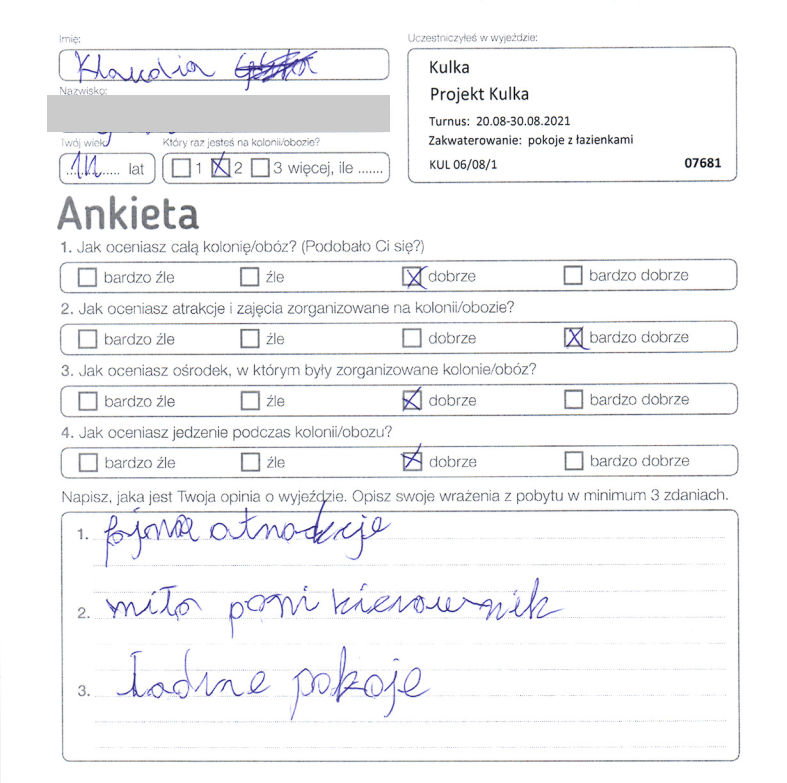 Imię:
Uczestniczyłeś w wyjeździe:
Klaudia
Kulka
Projekt Kulka
Nazwisko:
Turnus: 20.08-30.08.2021
Zakwaterowanie: pokoje z łazienkami
KUL 06/08/1 07681
Twój wiek Który raz jesteś na kolonii/obozie?
11 lat 1 2 3 więcej, ile .......
Ankieta
1. Jak oceniasz całą kolonię/obóz? (Podobało Ci się?)
bardzo źle źle dobrze bardzo dobrze
2. Jak oceniasz atrakcje i zajęcia zorganizowane na kolonii/obozie?
bardzo źle źle dobrze bardzo dobrze
3. Jak oceniasz ośrodek, w którym były zorganizowane kolonie/obóz?
bardzo źle źle dobrze bardzo dobrze
4. Jak oceniasz jedzenie podczas kolonii/obozu?
bardzo źle źle dobrze bardzo dobrze
Napisz, jaka jest Twoja opinia o wyjeździe. Opisz swoje wrażenia z pobytu w minimum 3 zdaniach.
1. fajne atrakcje
2. miła pani kierownik
3. Ładne pokoje